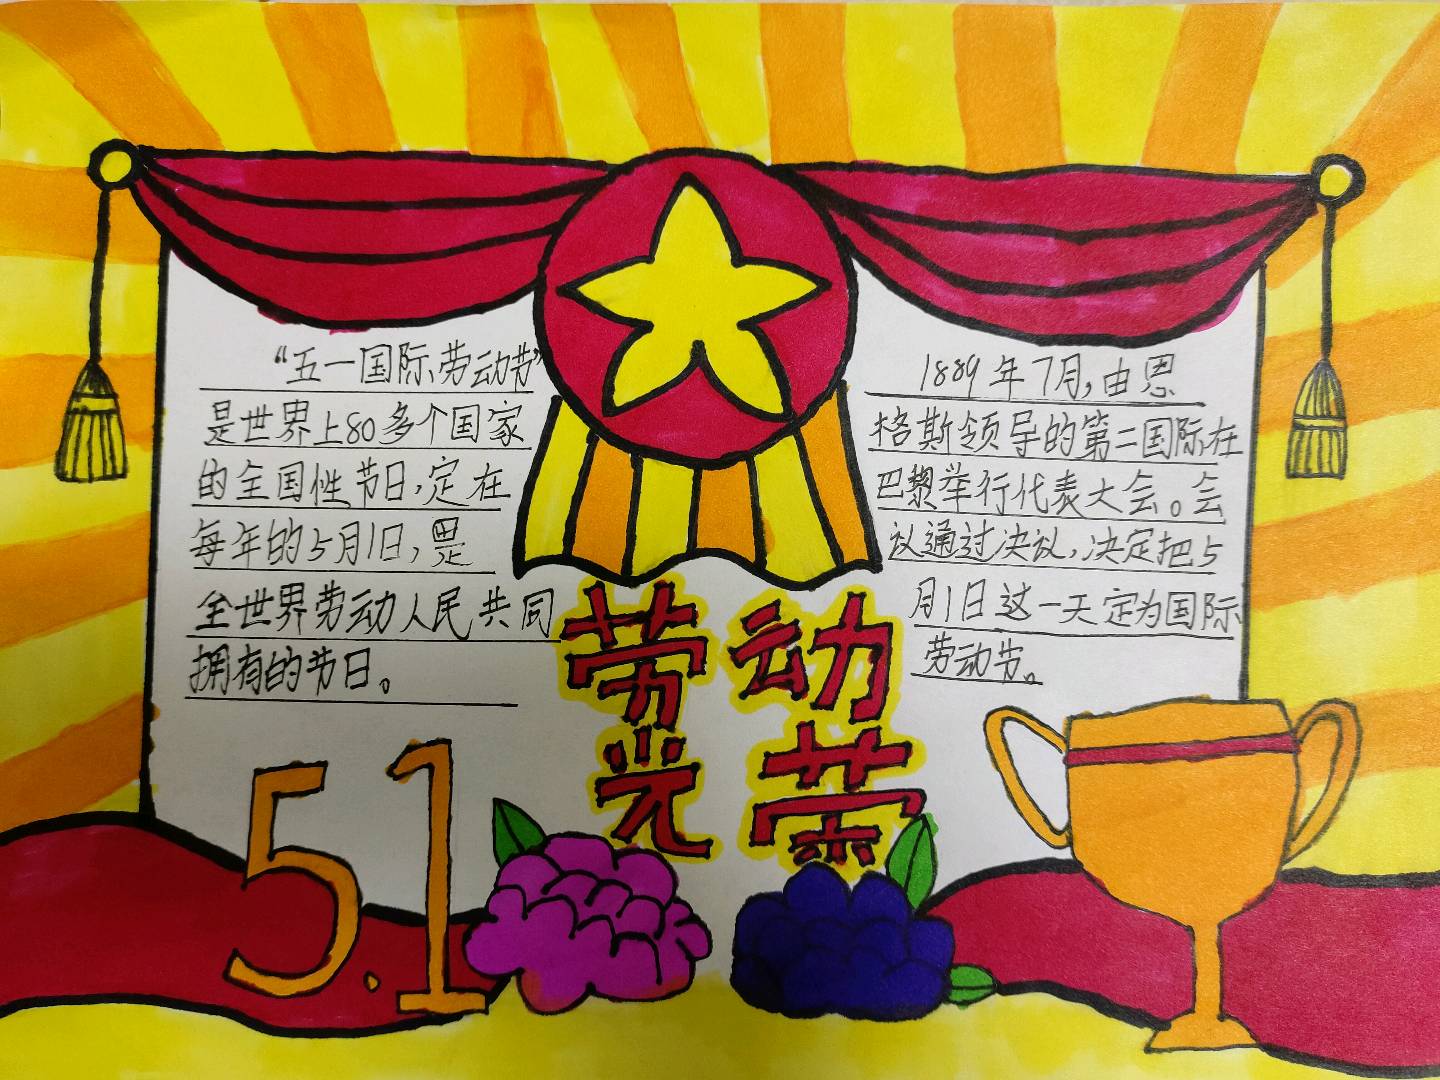 “五一国际劳动节”
是世界上80多个国家
的全国性节日,定在
每年的5月1日,是
全世界劳动人民共同
拥有的节日。
1889年7月,由恩
格斯领导的第二国际在
巴黎举行代表大会。会
议通过决议,决定把5
月1日这一天定为国际
劳动节。
劳动
光荣
5.1